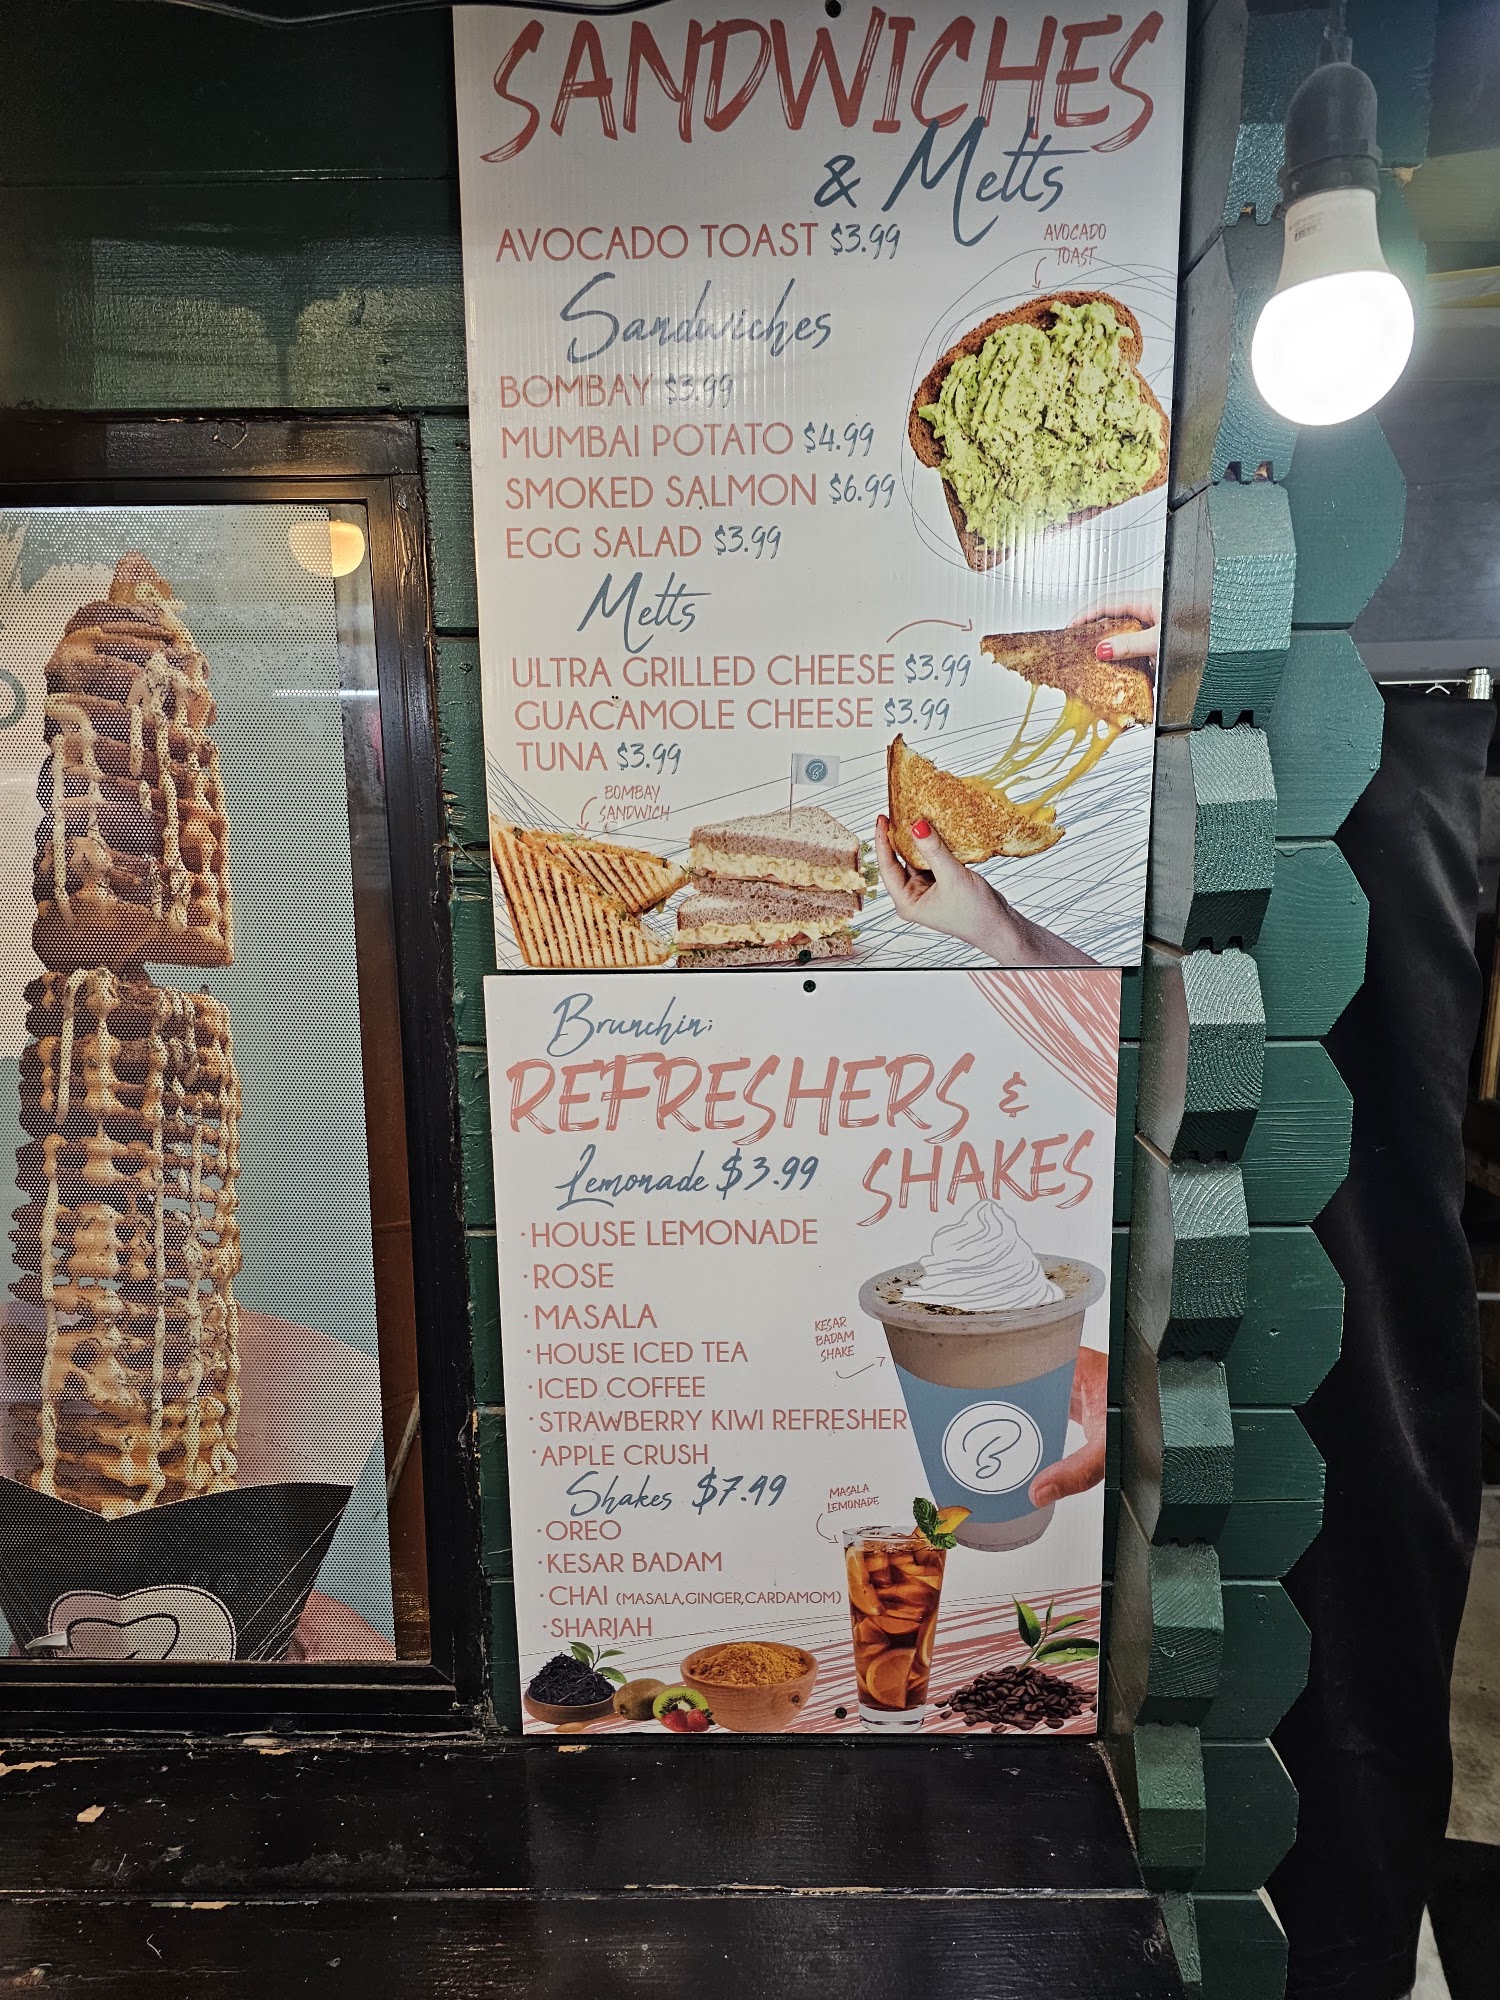 SANDWICHES
& Melts
AVOCADO TOAST $3.99
AVOCADO
TOAST
Sandwiches
BOMBAY $3.99
MUMBAI POTATO $4.99
SMOKED SALMON $6.99
EGG SALAD $3.99
Melts
ULTRA GRILLED CHEESE $3.99
GUACAMOLE CHEESE $3.99
TUNA $3.99
BOMBAY
SANDWICH
B
Brunchin;
REFRESHERS &
SHAKES
Lemonade $3.99
·HOUSE LEMONADE
·ROSE
·MASALA
·HOUSE ICED TEA
·ICED COFFEE
·STRAWBERRY KIWI REFRESHER
·APPLE CRUSH
KESAR
BADAM
SHAKE
B
Shakes $7.49
·OREO
·KESAR BADAM
·CHAI (MASALA,GINGER,CARDAMOM)
·SHARJAH
MASALA
LEMONADE